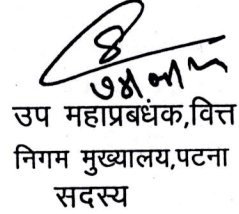 उप महाप्रबधंक,वित्त
निगम मुख्यालय,पटना
सदस्य